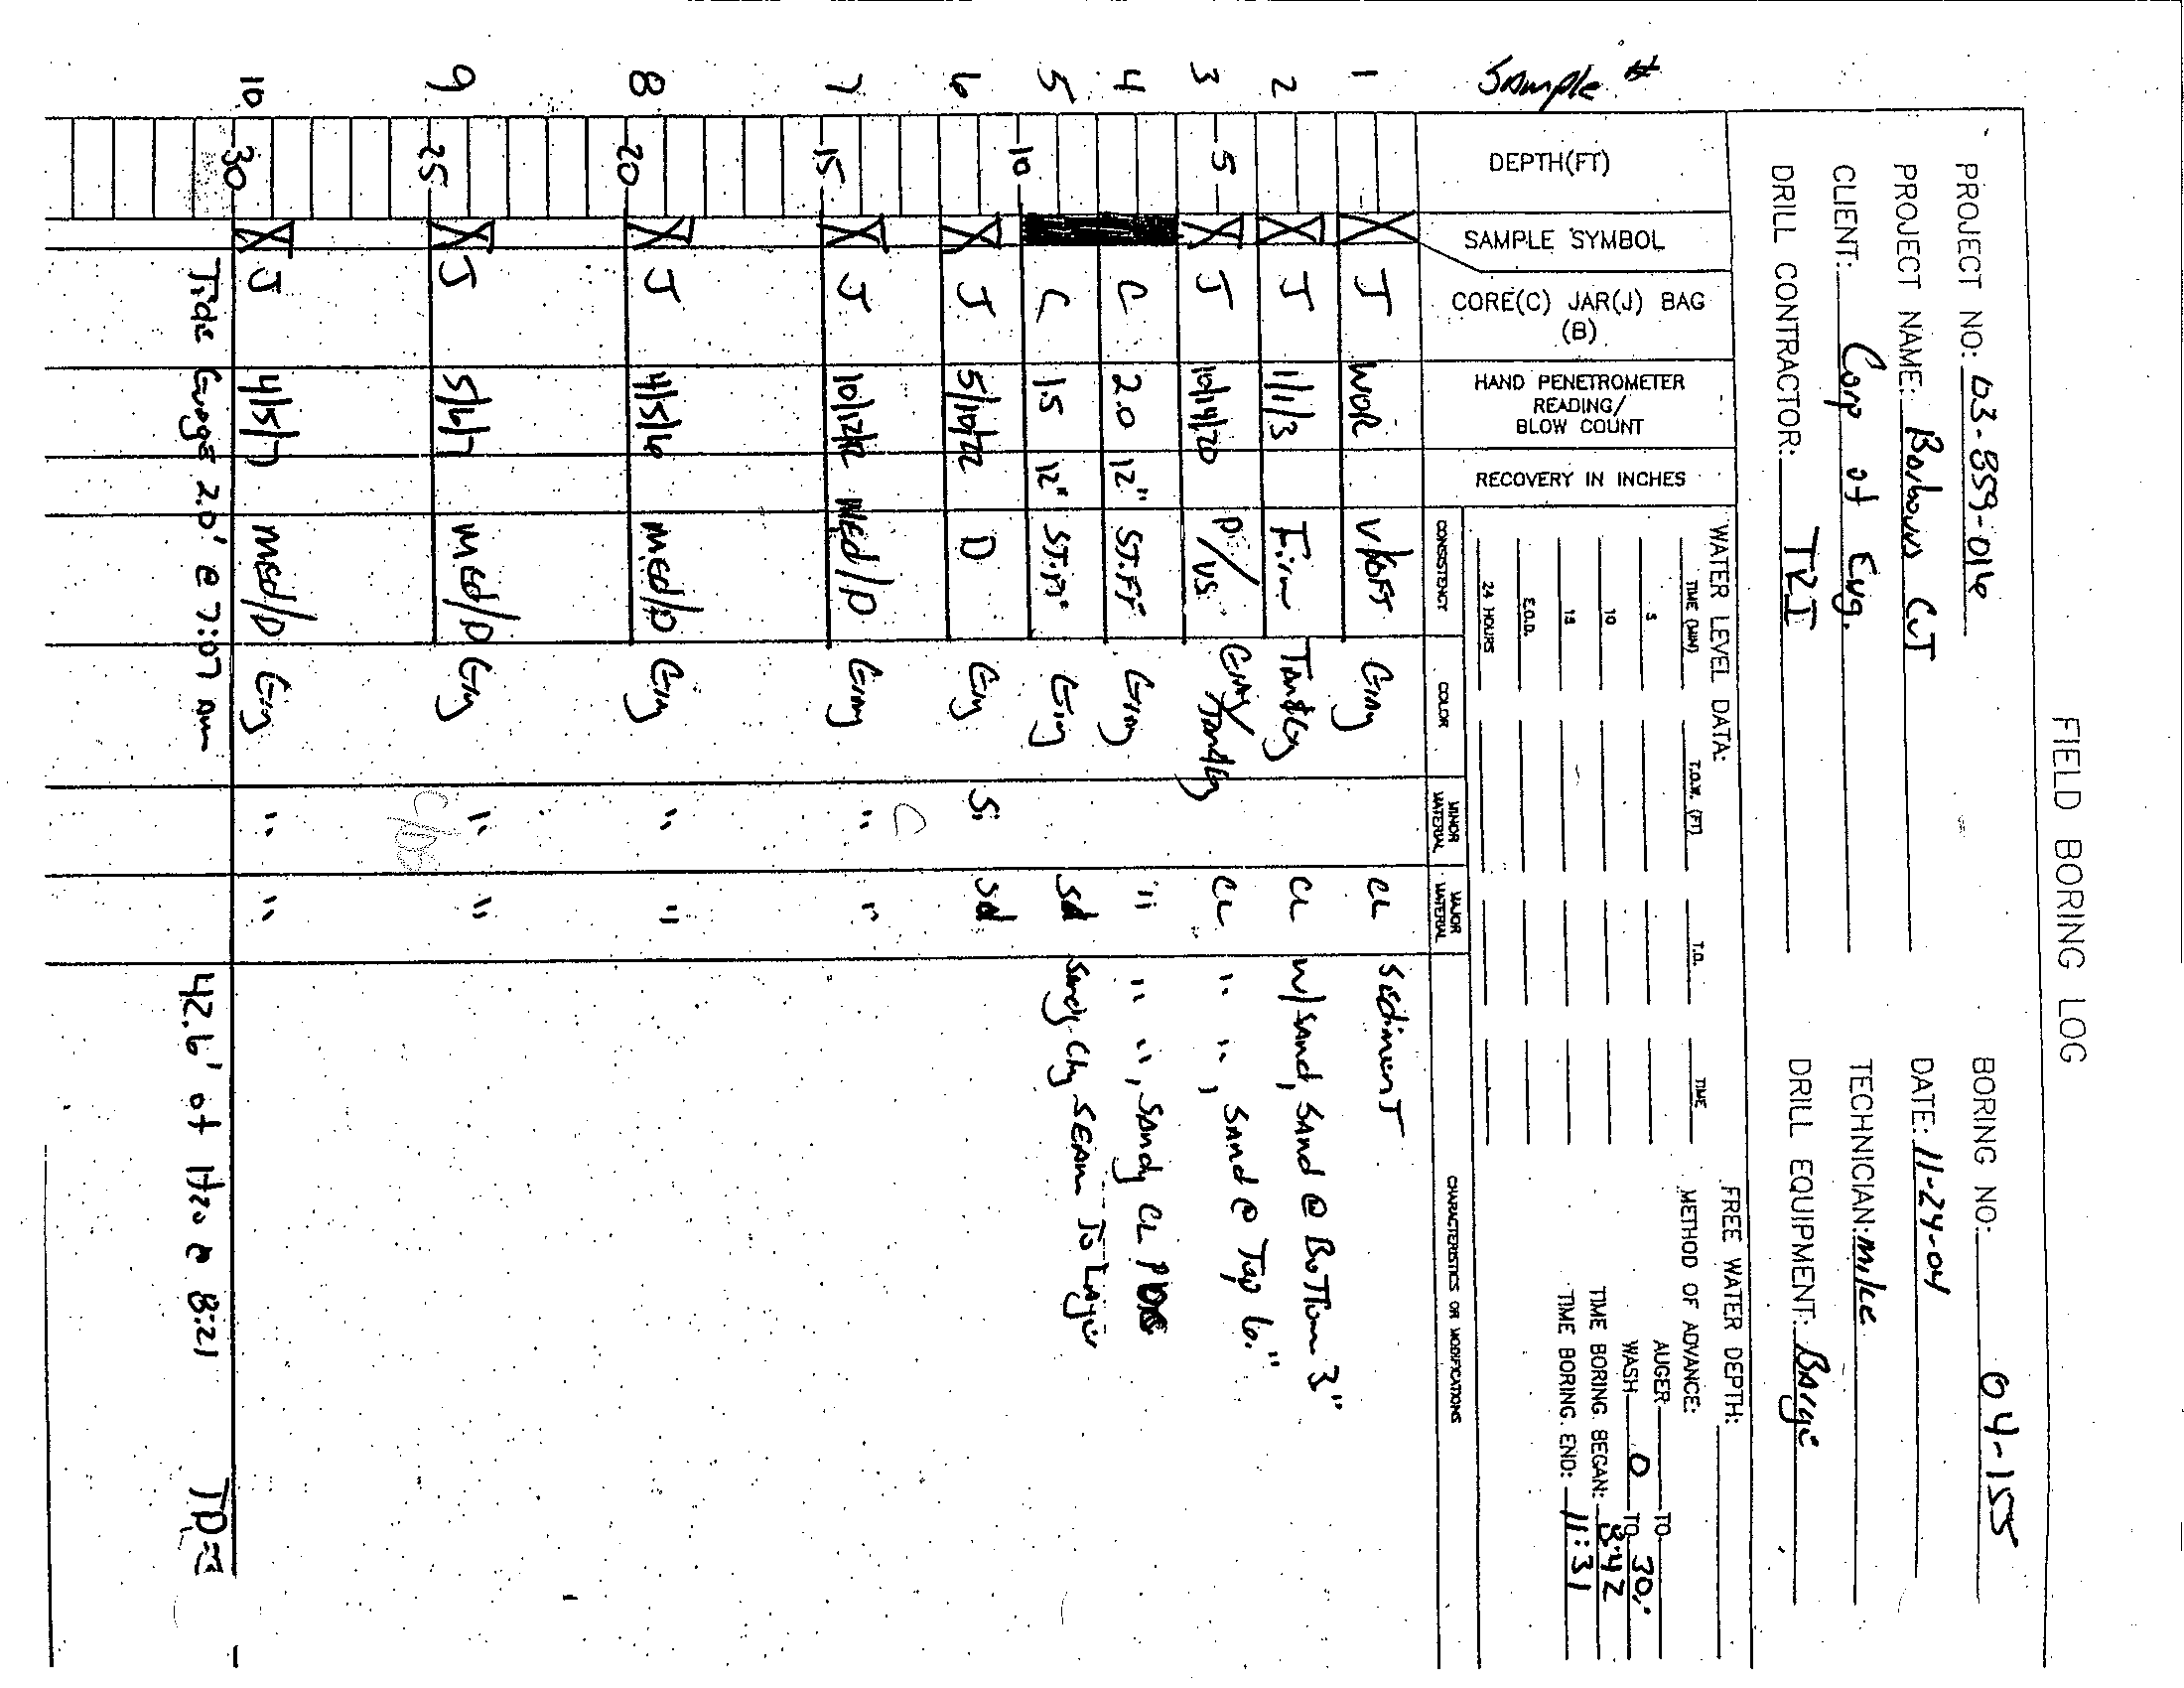 FIELD BORING LOG
PROJECT NO: 03-859-016 BORING NO: 04-155
PROJECT NAME: Barbours CuT DATE: 11-24-04
CLIENT: Corp of Eng. TECHNICIAN: Mike
DRILL CONTRACTOR: TRI DRILL EQUIPMENT: Barge
WATER LEVEL DATA: FREE WATER DEPTH:
TIME (MIN) T.O.W. (FT) T.D. TIME METHOD OF ADVANCE:
5 AUGER TO
10 WASH 0 TO 30'
15 TIME BORING BEGAN: 8:42
E.O.D. TIME BORING END: 11:31
24 HOURS
Sample # DEPTH(FT) SAMPLE SYMBOL CORE(C) JAR(J) BAG (B) HAND PENETROMETER READING/ BLOW COUNT RECOVERY IN INCHES CONSISTENCY COLOR MINOR MATERIAL MAJOR MATERIAL CHARACTERISTICS OR MODIFICATIONS
1 J WOR V/SOFT Gray CL Sediment
2 J 1/1/3 Firm Tan&Gy CL w/sand, sand @ Bottom 3"
3 5 J 10/14/20 P/VS Gray/Tan&Gy CL " ", sand @ Top 6"
4 C 2.0 12" STiFF Gray " " ", sandy CL
5 10 C 1.5 12" STiFF Gray sd sandy Cly seam To Layer
6 J 5/10/12 D Gry Si sd
7 15 J 10/12/12 MEd/D Gray " "
8 20 J 4/5/6 MEd/D Gry " "
9 25 J 5/6/7 MEd/D Gry " "
10 30 J 4/5/7 MEd/D Gry " "
Tide Gauge 2.0' @ 7:07 Am 42.6' of H20 @ 8:21 TD=